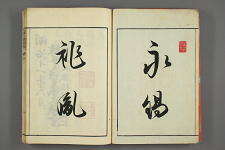 永錫
祚胤